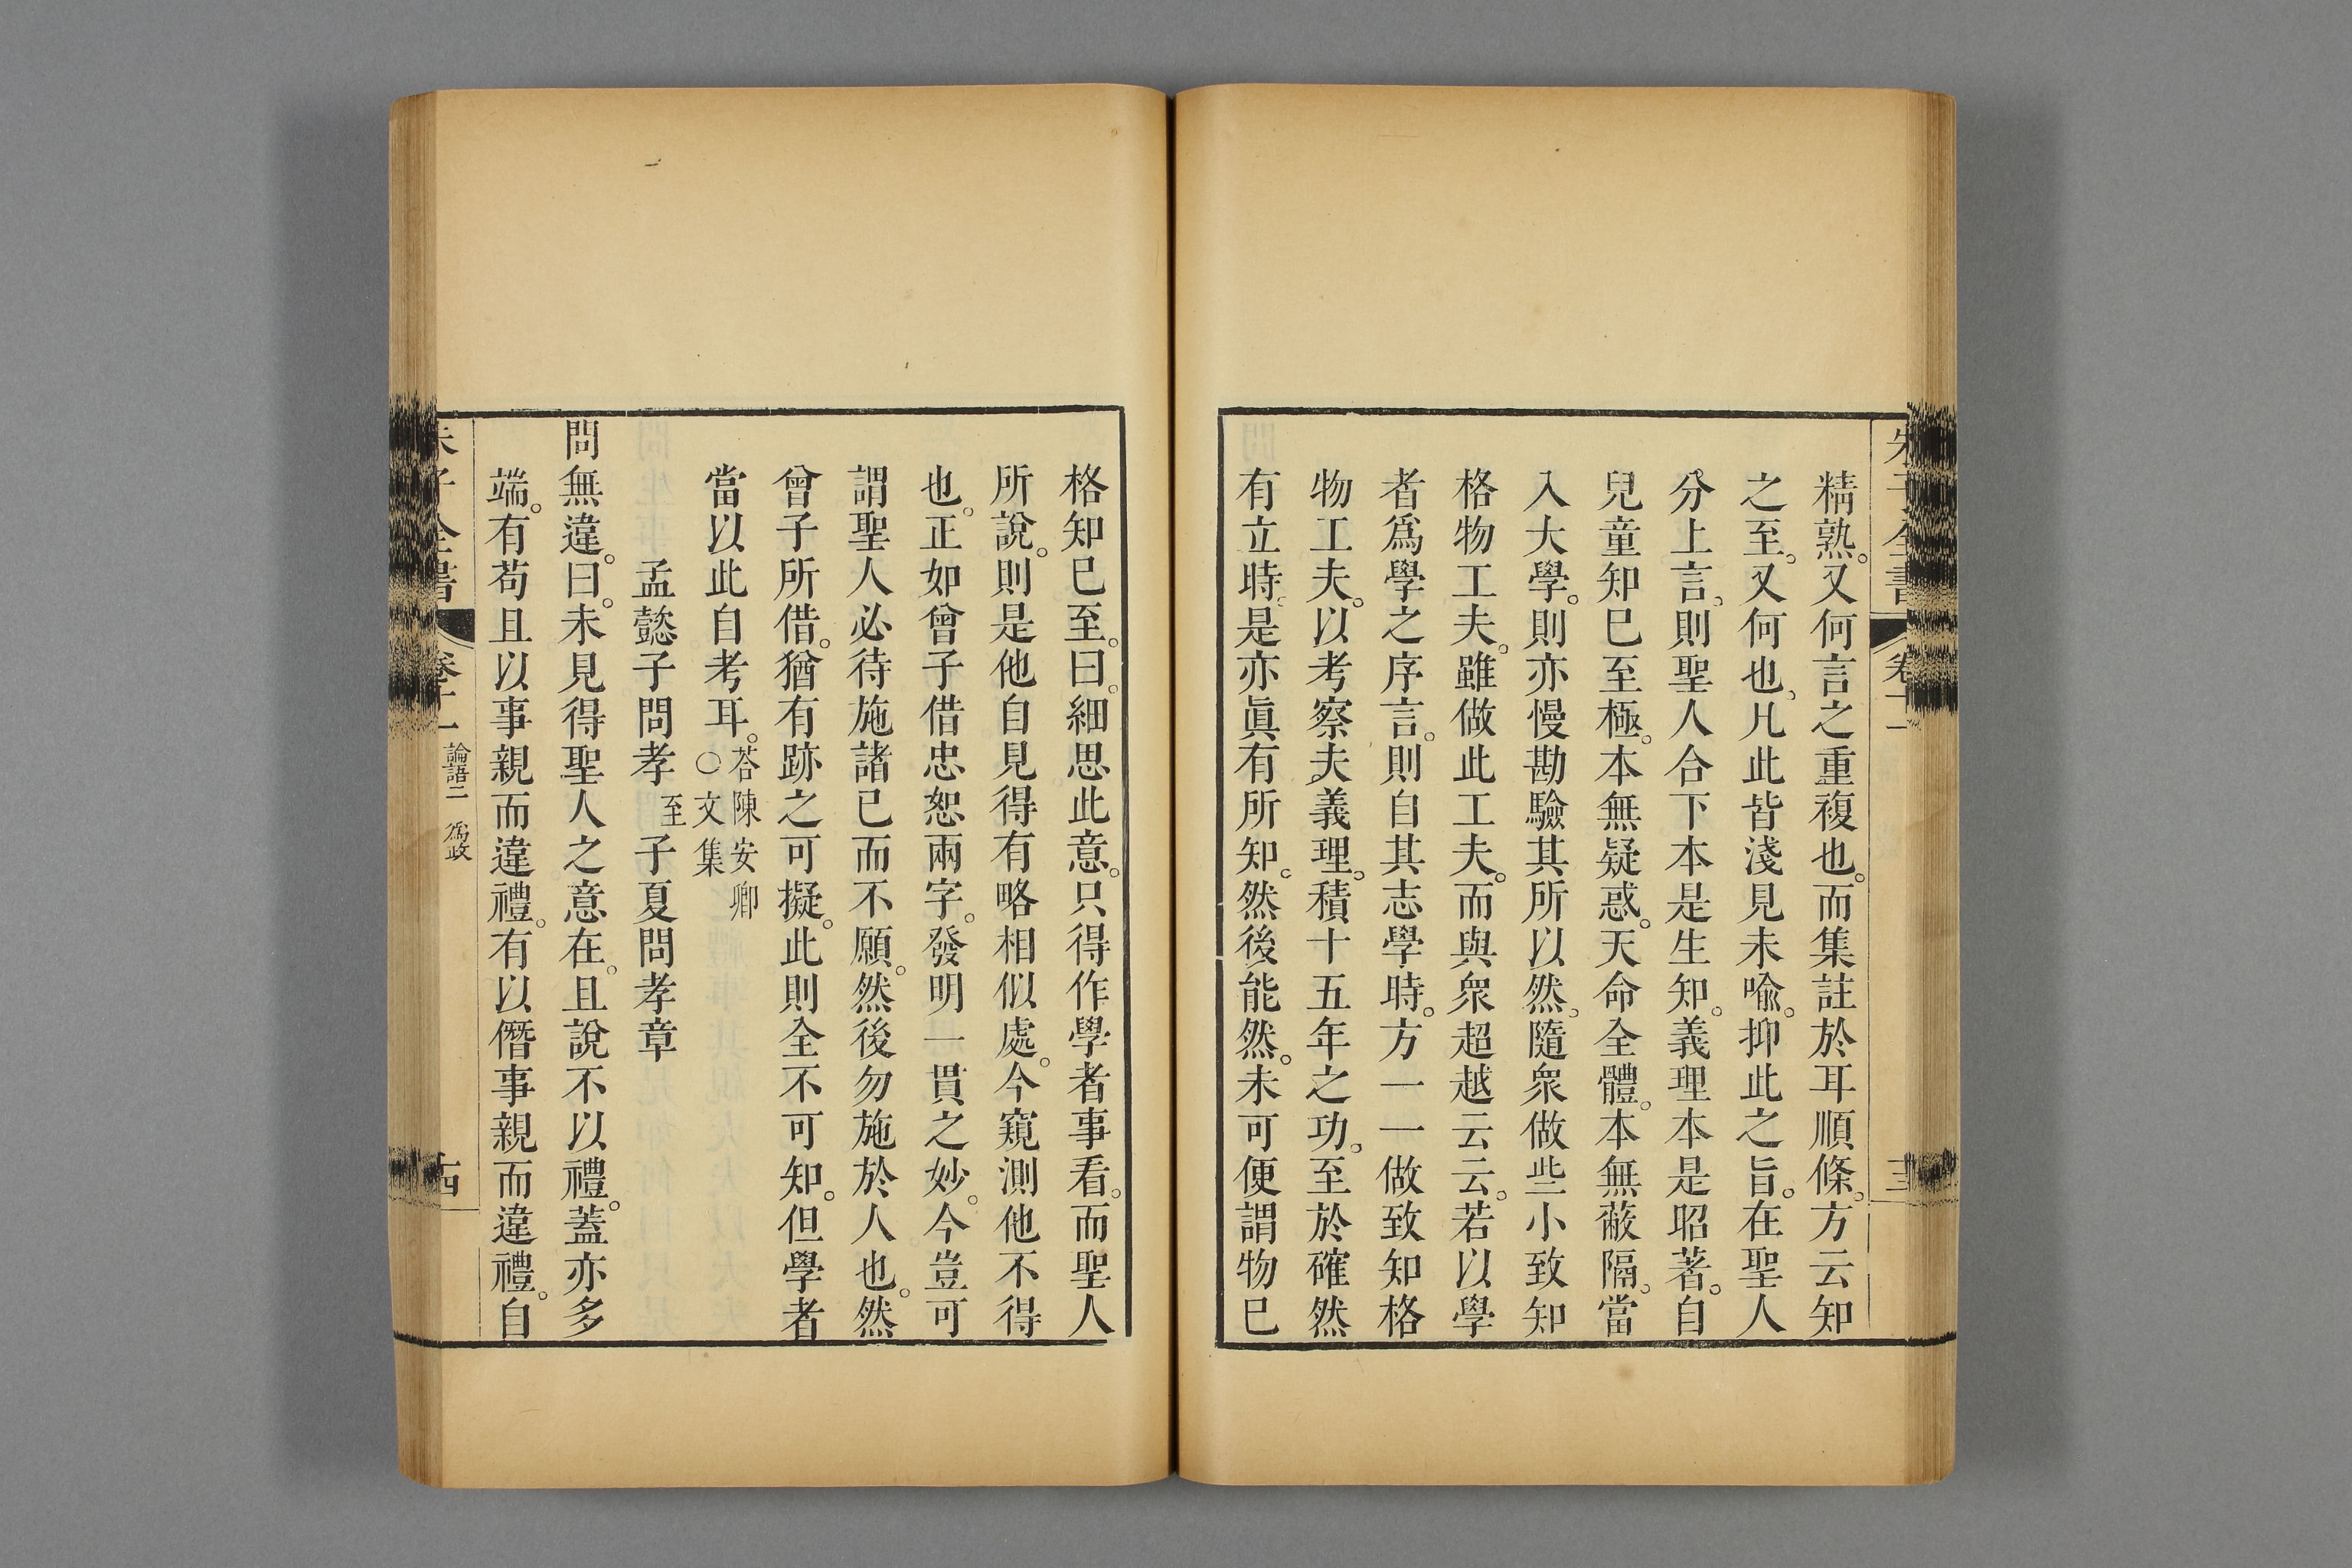 朱子全書 卷十一 十三
精熟。又何言之重複也。而集註於耳順條。方云知
之至。又何也。凡此皆淺見未喩。抑此之旨。在聖人
分上言。則聖人合下本是生知。義理本是昭著。自
兒童知已至極。本無疑惑。天命全體。本無蔽隔。當
入大學。則亦慢勘驗其所以然。隨衆做些小致知
格物工夫。雖做此工夫。而與衆超越云云。若以學
者爲學之序言。則自其志學時。方一一做致知格
物工夫。以考察夫義理。積十五年之功。至於確然
有立時。是亦眞有所知。然後能然。未可便謂物已
格知已至。曰。細思此意。只得作學者事看。而聖人
所說。則是他自見得有略相似處。今窺測他不得
也。正如曾子借忠恕兩字。發明一貫之妙。今豈可
謂聖人必待施諸已而不願。然後勿施於人也。然
曾子所借。猶有跡之可擬。此則全不可知。但學者
當以此自考耳。荅陳安卿○文集
孟懿子問孝至子夏問孝章
問無違。曰。未見得聖人之意在。且說不以禮。蓋亦多
端。有苟且以事親而違禮。有以僭事親而違禮。自
朱子全書 卷十一 論語二 爲政 十四